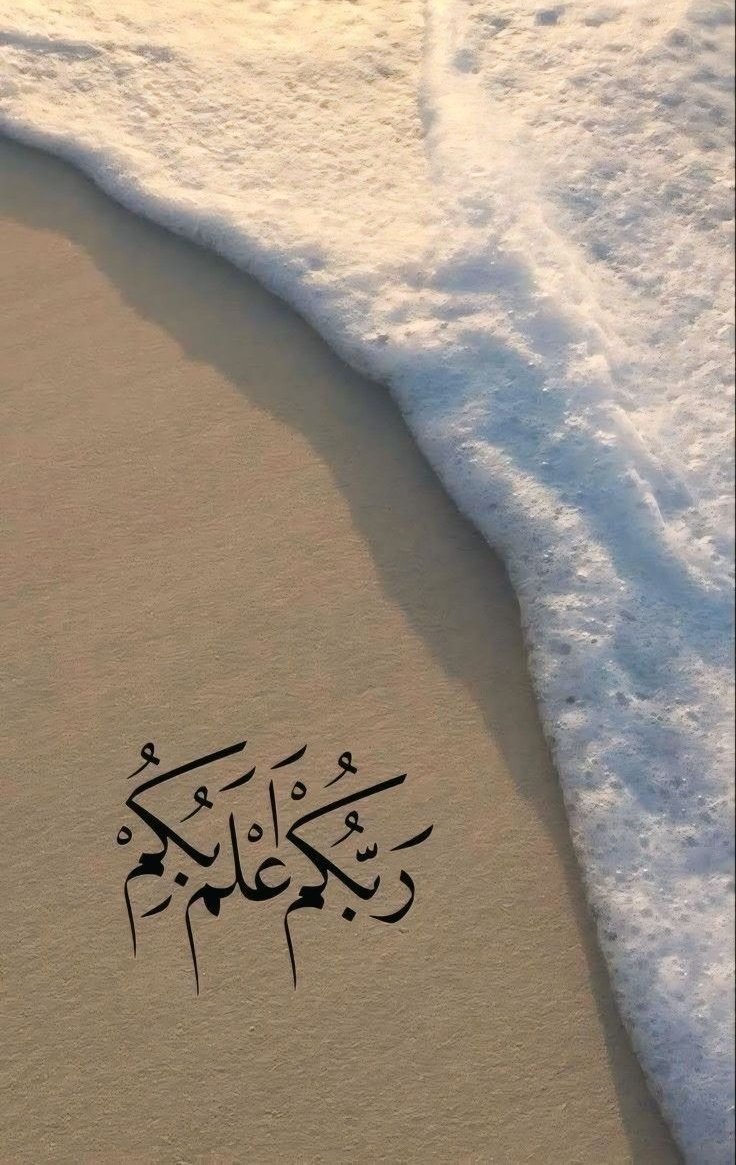 رَبُّكُمْ أَعْلَمُ بِكُمْ